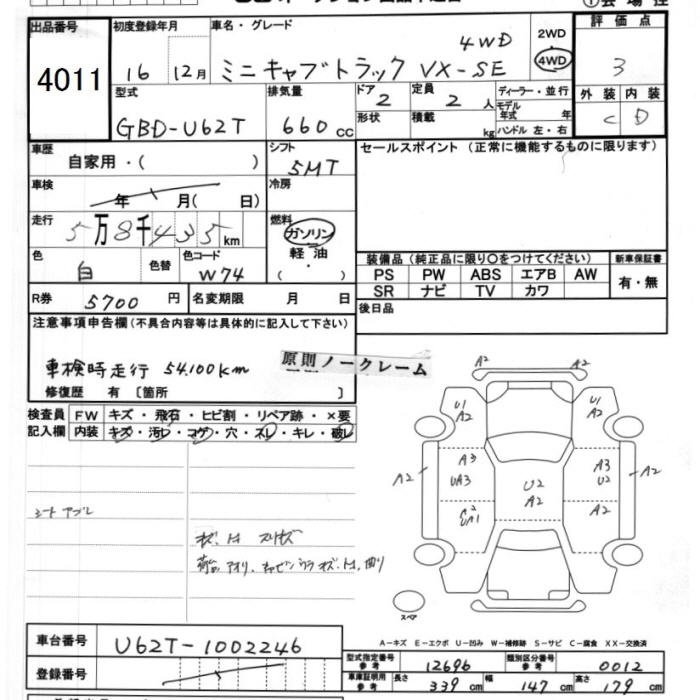 出品番号 4011
初度登録年月 16 12月
車名・グレード ミニキャブトラック VX-SE 4WD
2WD
4WD
評価点 3
外装 C 内装 D
型式 GBD-U62T
排気量 660 cc
ドア 2
定員 2 人
形状
積載 kg
ディーラー・並行
モデル年式 年
ハンドル 左・右
車歴 自家用・( )
シフト 5MT
セールスポイント (正常に機能するものに限ります)
車検 年 月( 日)
冷房
走行 5万8千435km
燃料 ガソリン
軽油
( ・ )
色 白 色替
色コード W74
装備品 (純正品に限り○をつけてください)
新車保証書
PS PW ABS エアB AW
SR ナビ TV カワ
有・無
R券 5700 円
名変期限 月 日
後日品
注意事項申告欄(不具合内容等は具体的に記入して下さい)
車検時走行 54,100km
原則ノークレーム
修復歴 有 〔箇所 〕
検査員 FW キズ・飛石・ヒビ割・リペア跡・×要
記入欄 内装 キズ・汚レ・コゲ・穴・スレ・キレ・破レ
A2 A2
U1 A2
U1 A2
A3 UA3
A3 U2
A2 A2
U2 A2
A2
シートアブレ
キズ、凹 スリキズ
スペア
A-キズ E-エクボ U-凹み W-補修跡 S-サビ C-腐食 XX-交換済
車台番号 U62T-1002246
登録番号
型式指定番号 参考 12696
類別区分番号 参考 0012
車庫証明用 参考 長さ 339 cm 幅 147 cm 高さ 179 cm